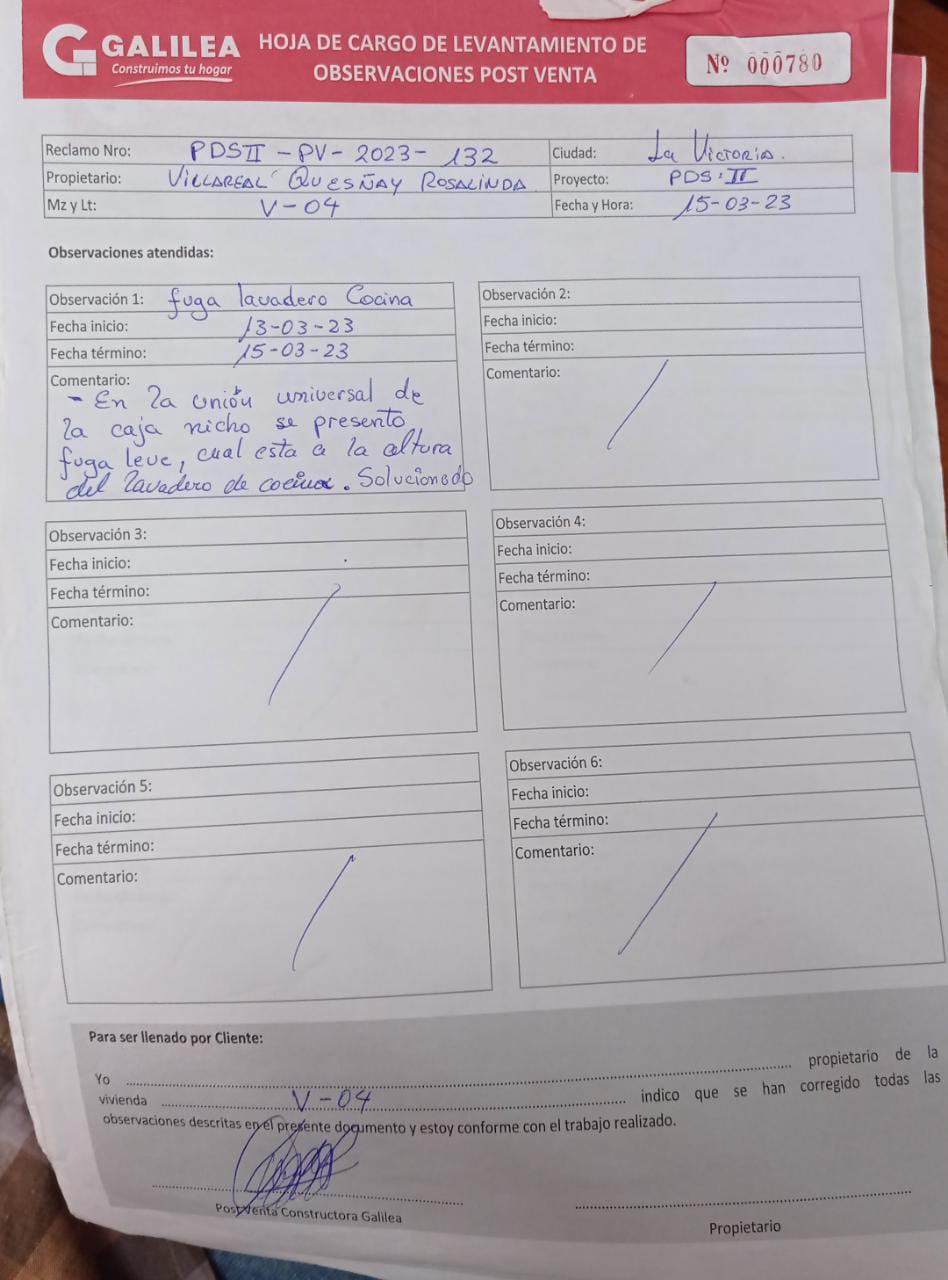 GALILEA
Construimos tu hogar
HOJA DE CARGO DE LEVANTAMIENTO DE
OBSERVACIONES POST VENTA
Nº 000780
Reclamo Nro: PDSII - PV - 2023 - 132
Ciudad: La Victoria.
Propietario: Villareal Quesñay Rosalinda
Proyecto: PDS-II
Mz y Lt: V-04
Fecha y Hora: 15-03-23
Observaciones atendidas:
Observación 1: fuga lavadero Cocina
Fecha inicio: 13-03-23
Fecha término: 15-03-23
Comentario:
- En la unión universal de
la caja nicho se presento
fuga leve, cual esta a la altura
del lavadero de cocina. Solucionado
Observación 2:
Fecha inicio:
Fecha término:
Comentario:
Observación 3:
Fecha inicio:
Fecha término:
Comentario:
Observación 4:
Fecha inicio:
Fecha término:
Comentario:
Observación 5:
Fecha inicio:
Fecha término:
Comentario:
Observación 6:
Fecha inicio:
Fecha término:
Comentario:
Para ser llenado por Cliente:
Yo ........ propietario de la
vivienda ........ V-04 ........ indico que se han corregido todas las
observaciones descritas en el presente documento y estoy conforme con el trabajo realizado.
Post Venta Constructora Galilea
Propietario